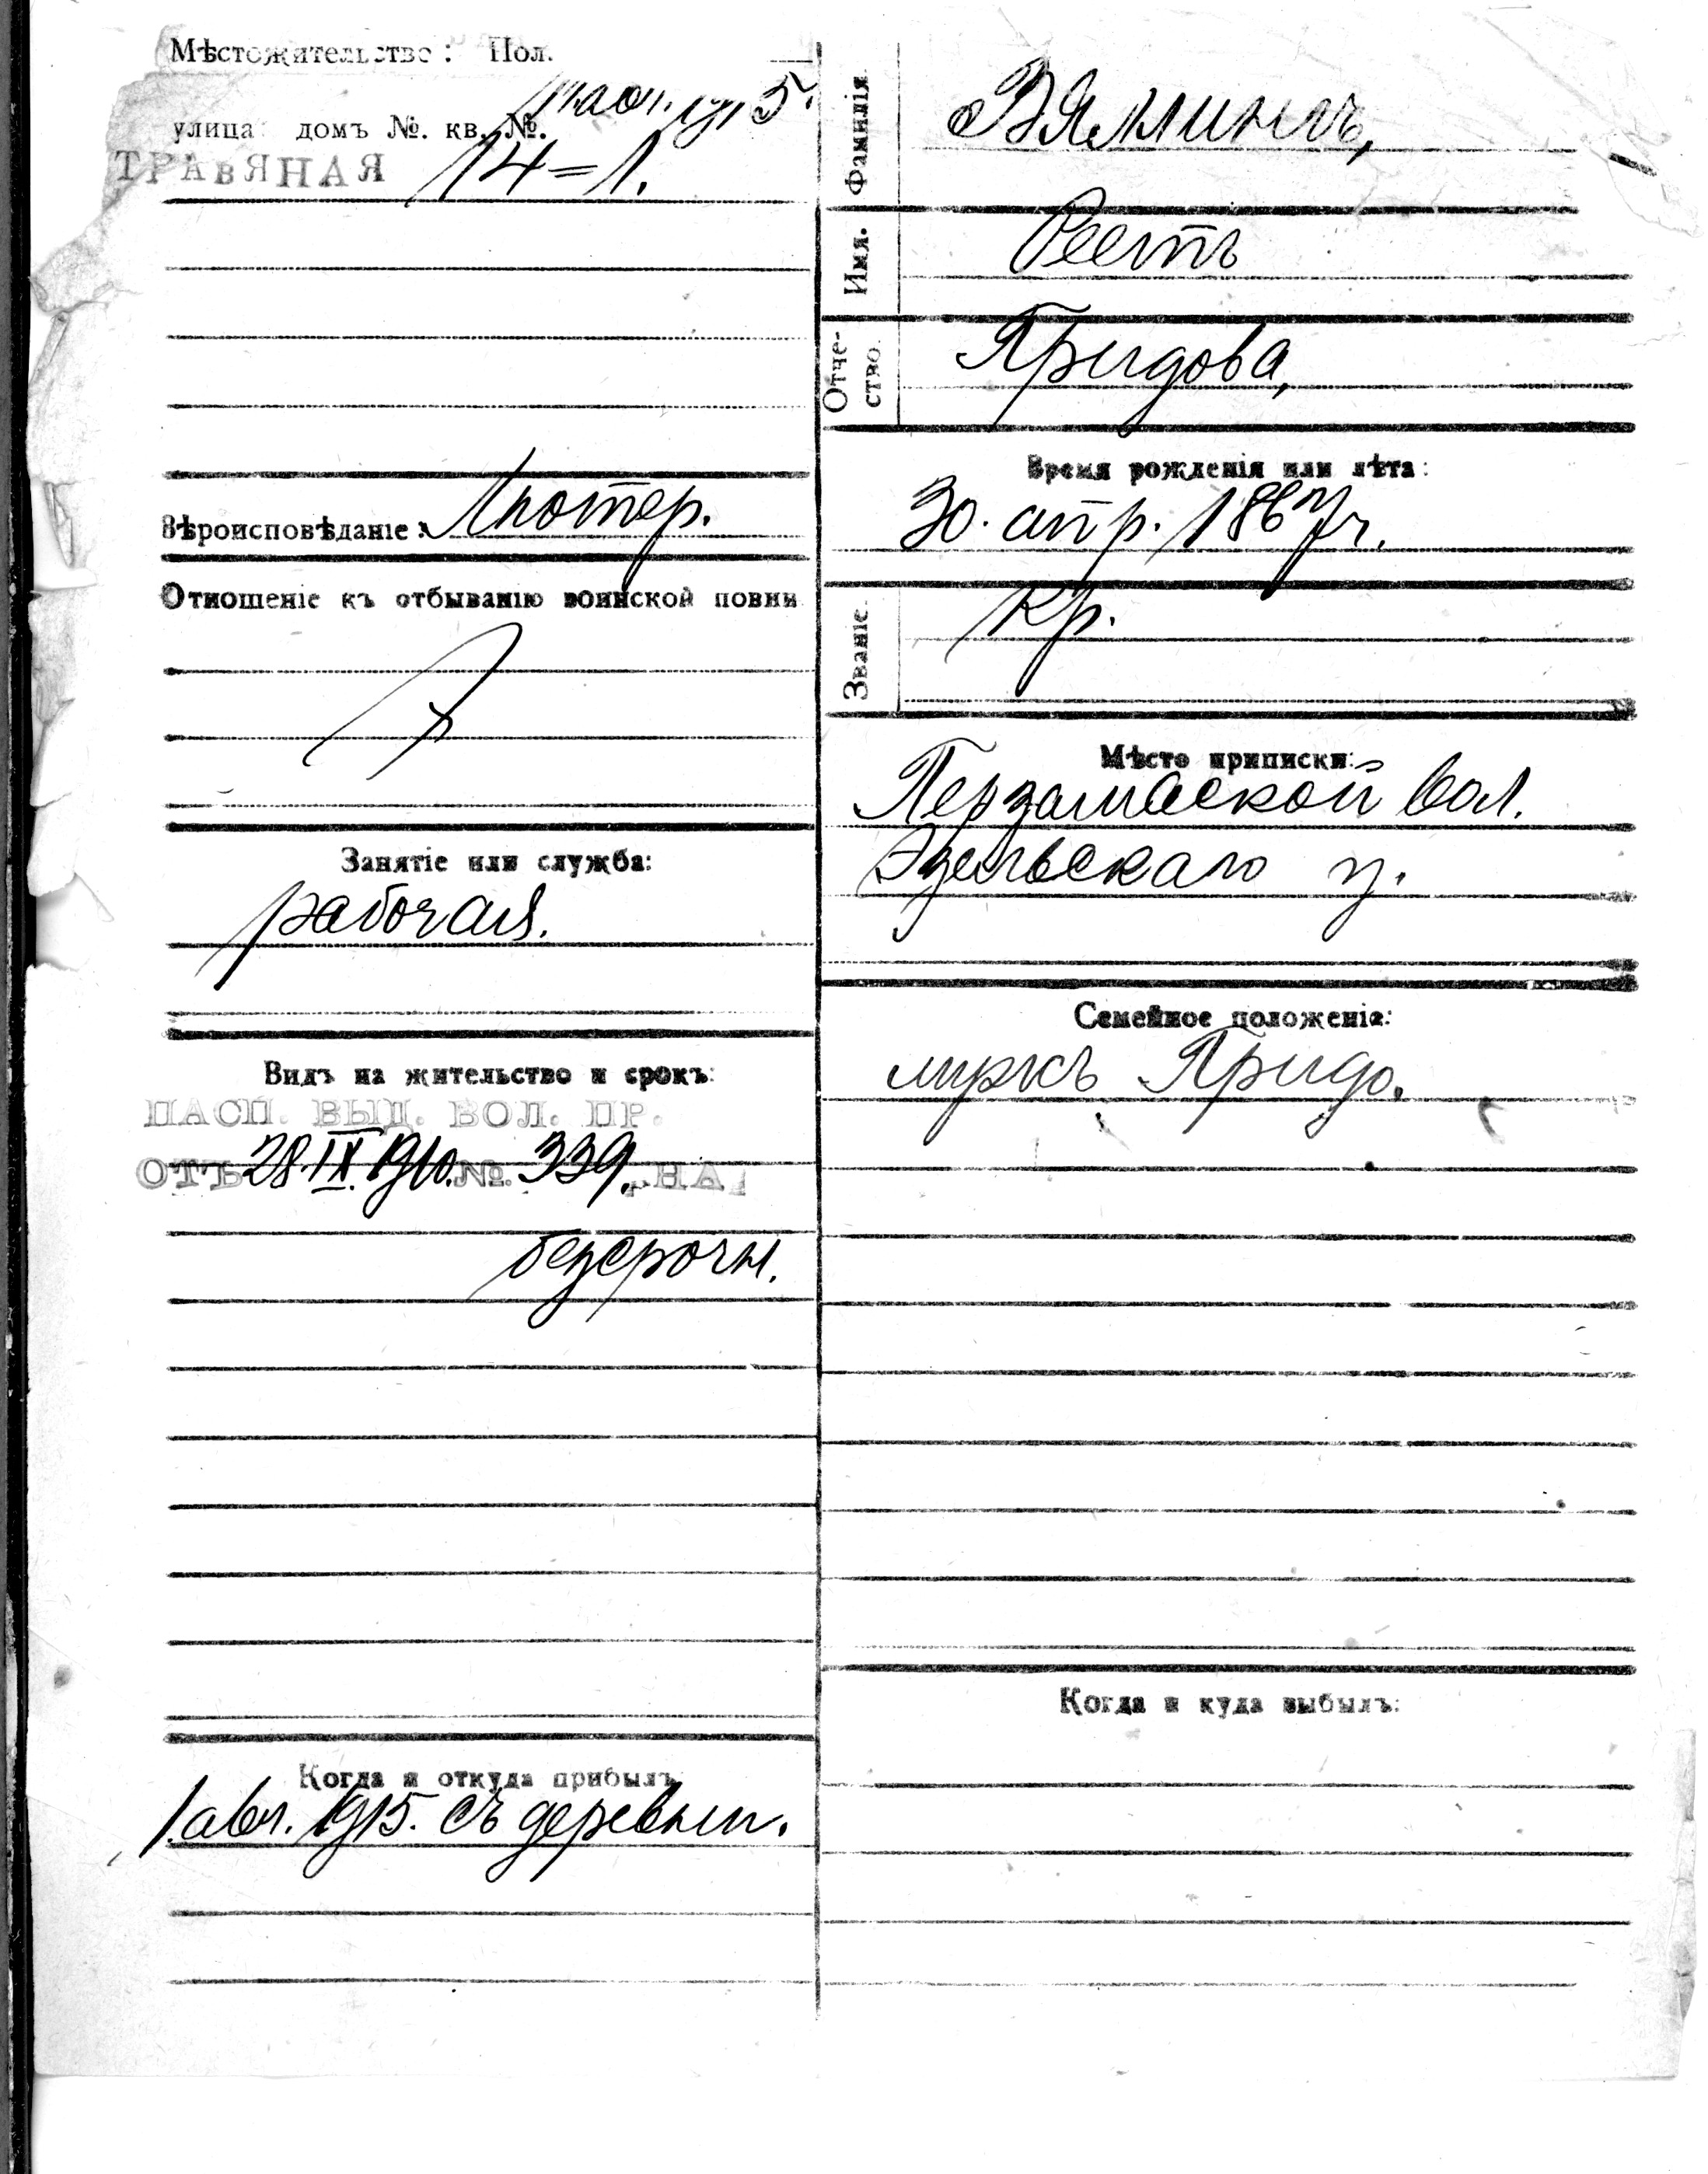 Мѣстожительство: Пол.
улица домъ №. кв. №.
ТРАВЯНАЯ 14=1.
Вѣроисповѣданіе: Лютер.
Отношеніе къ отбыванію воинской повин
Занятіе или служба:
рабочая.
Видъ на жительство и срокъ:
ПАСП. ВЫД. ВОЛ. ПР.
ОТЪ 28.IX.1910. №. 339. НА
безсрочн.
Когда и откуда прибылъ
1 авг. 1915. съ деревни.
Фамилія
Имя.
Реетъ
Отче-
ство.
Придова,
Время рожденія или лѣта:
30. апр. 1867 г.
Званіе.
Кр.
Мѣсто приписки:
Перзамаской вол.
Эзельскаго у.
Семейное положенія:
мужъ Придо.
Когда и куда выбылъ: